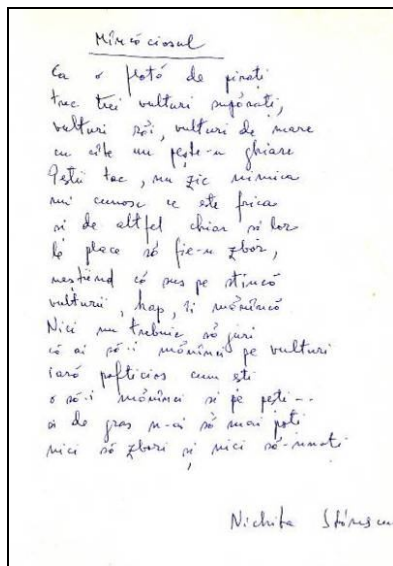 Mîncăciosul
Ca o flotă de pirați
trec trei vulturi supărați,
vulturi răi, vulturi de mare
cu cîte un pește-n ghiare
Peștii tac, nu zic nimica
nici cunosc ce este frica
și de altfel chiar și lor
le place să fie-n zbor,
neștiind că sus pe stîncă
vulturii, hap, îi mănîncă
Nici nu trebuie să juri
că ai să-i mănînci pe vulturi
iară pofticios cum ești
o să-i mănînci și pe pești...
și de gras n-ai să mai poți
nici să zbori și nici să-nnoți
Nichita Stănescu